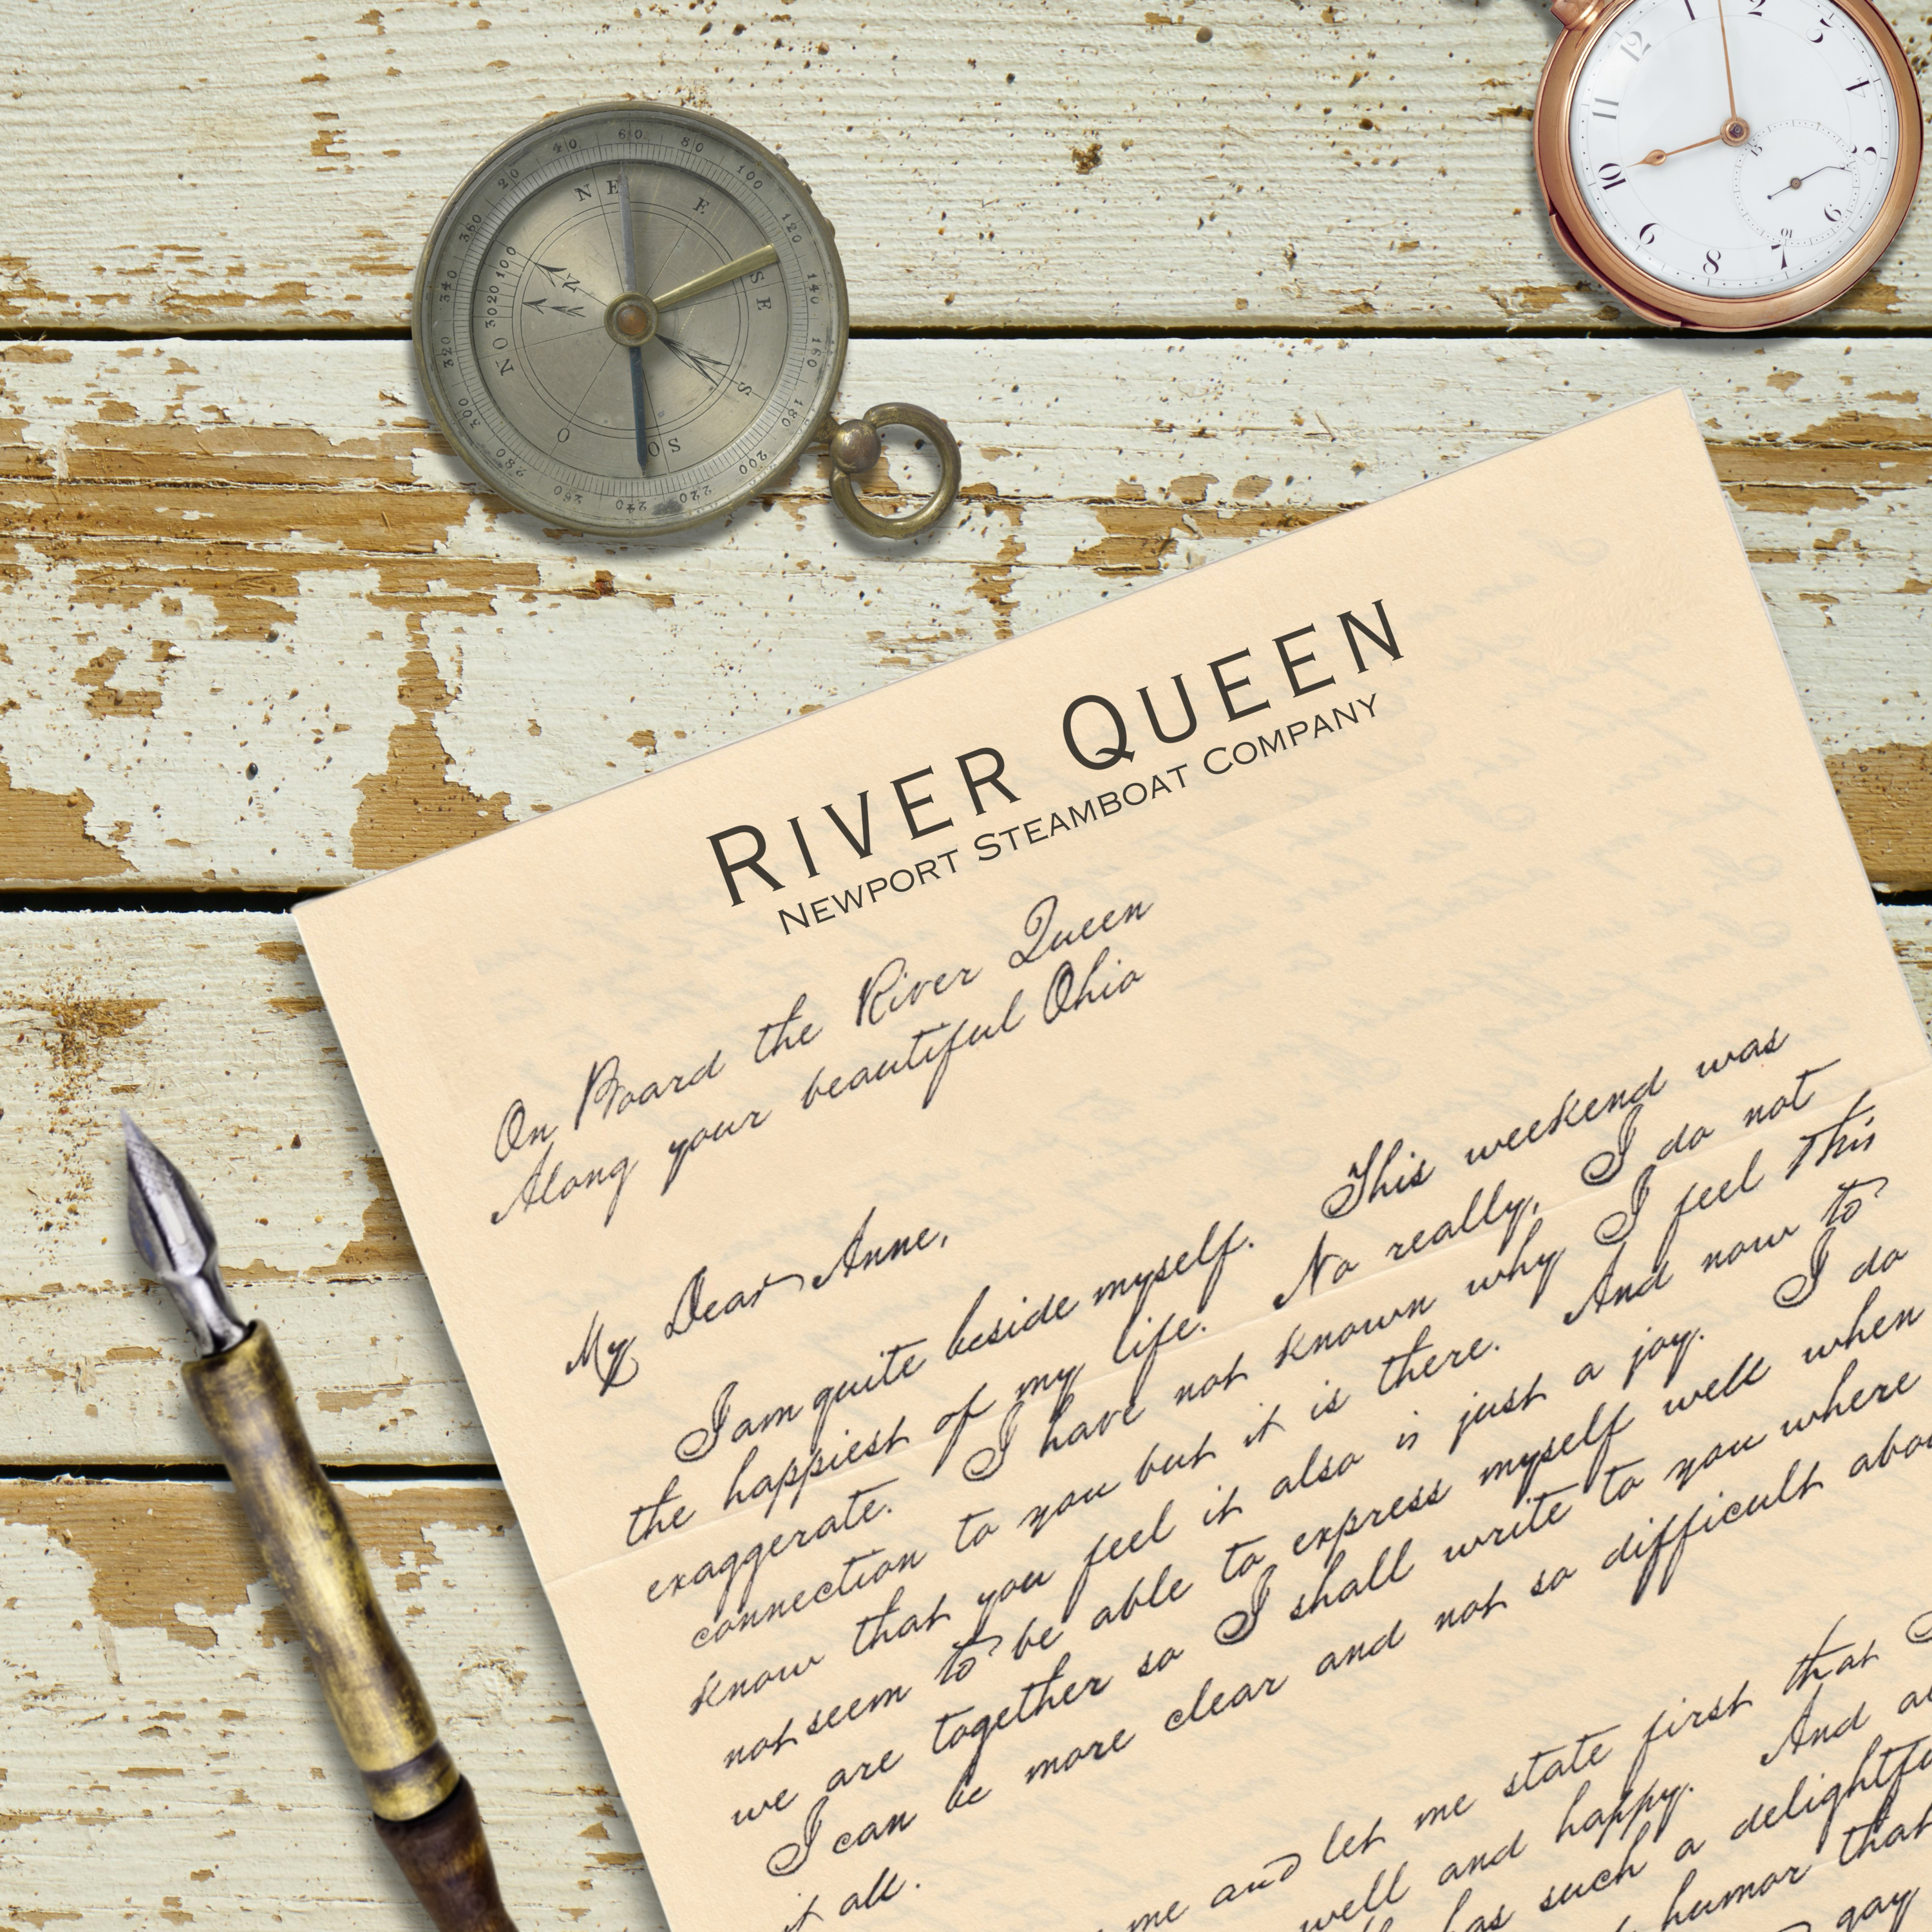 RIVER QUEEN
NEWPORT STEAMBOAT COMPANY
On Board the River Queen
Along your beautiful Ohio
My Dear Anne,
I am quite beside myself. This weekend was
the happiest of my life. No really, I do not
exaggerate. I have not known why I feel this
connection to you but it is there. And now to
know that you feel it also is just a joy. I do
not seem to be able to express myself well when
we are together so I shall write to you where
I can be more clear and not so difficult
it all.
me and let me state first that
well and happy. And
has such a delightful
humor that
gay
60 80 100 120 140 160 180 200 220 240 260 280 300 320 340 360 20 40
N E SE S SO O NO
NE
100 20 30
1 2 3 4 5 7 8 9 10 11 12